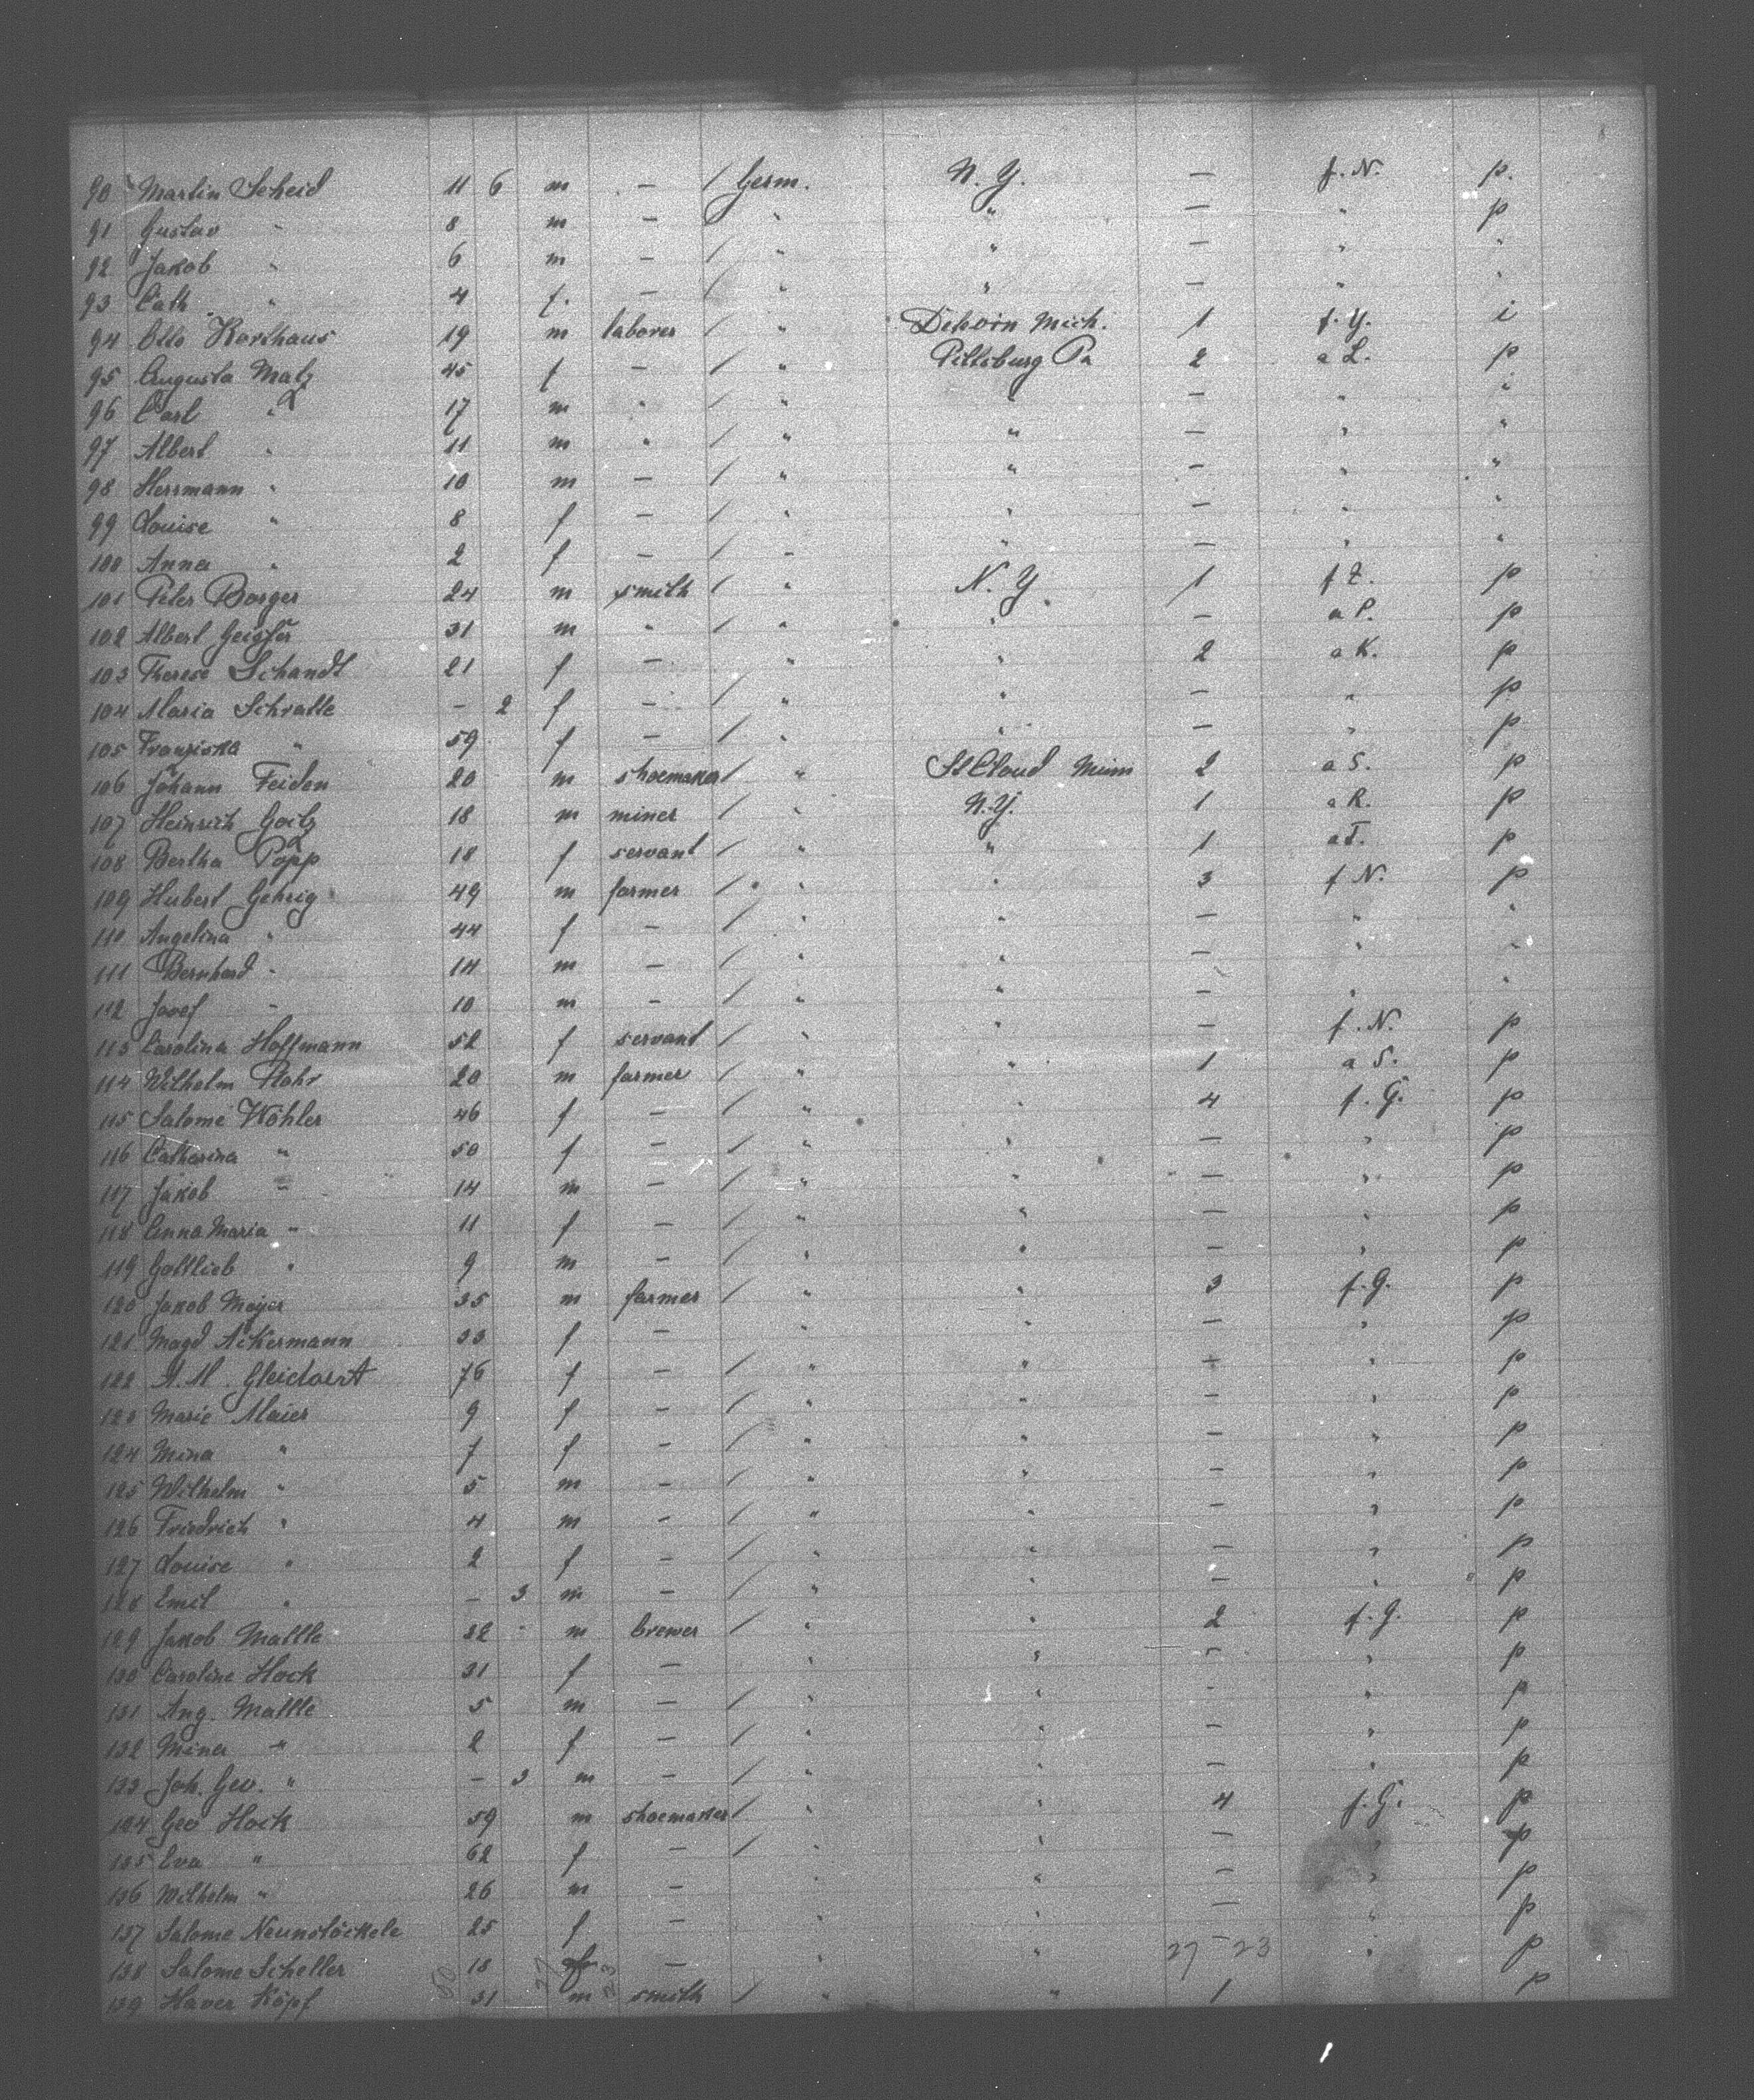 90 Martin Scheid 11 6 m — / Germ. N. Y. — f. N. p.
91 Gustav " 8 m — " " — " p
92 Jakob " 6 m — / " " — " "
93 Cath. " 4 f. — / " " — " "
94 Otto Korthaus 19 m laborer / " Mich. 1 f. Y. i
95 Augusta Matz 45 f — / " Pittsburg Pa 2 a L. p
96 Carl " 17 m " / " " — " i
97 Albert " 11 m " / " " — " "
98 Herrmann " 10 m — / " " — " "
99 Louise " 8 f — / " " — " "
100 Anna " 2 f — / " " — " "
101 Peter Borger 24 m smith / " N. Y. 1 f Z. p
102 Albert 31 m " / " " — a P. p
103 Therese Schandt 21 f — " " 2 a K. p
104 Maria Schratte — 2 f — / " " — " p
105 Franziska " 59 f — / " " — " p
106 Johann Feiden 20 m shoemaker / " St Cloud Minn 2 a S. p
107 Heinrich Goetz 18 m miner / " N. Y. 1 a R. p
108 Bertha Popp 18 f servant / " " 1 a T. p
109 Hubert Gehrig 49 m farmer / " " 3 f N. p
110 Angelina " 44 f — / " " — " "
111 Bernhard " 14 m — / " " — " "
112 Josef " 10 m — / " " — " "
113 Carolina Hoffmann 52 f servant / " " — f. N. p
114 Wilhelm Flohr 20 m farmer / " " 1 a S. p
115 Salome Wöhler 46 f — / " " 4 f. G. p
116 Catharina " 50 f — / " " — " p
117 Jakob " 14 m — / " " — " p
118 Anna Maria " 11 f — / " " — " p
119 Gottlieb " 9 m — / " " — " p
120 Jakob Majer 35 m farmer / " " 3 f. G. p
121 Magd Ackermann 33 f — " " — " p
122 A. M. 76 f — / " " — " p
123 Marie Maier 9 f — / " " — " p
124 Mina " 7 f — / " " — " p
125 Wilhelm " 5 m — / " " — " p
126 Friedrich " 4 m — / " " — " p
127 Louise " 2 f — / " " — " p
128 Emil " — 3 m — / " " — " p
129 Jakob Mattle 32 m brewer / " " 2 f. G. p
130 Caroline Hock 31 f — " " — " p
131 Aug. Mattle 5 m — / " " — " p
132 Mina " 2 f — / " " — " p
133 Joh. Geo. " — 3 m — / " " — " p
134 Geo Hock 59 m shoemaker / " " 4 f. G. p
135 Eva " 62 f — / " " — " p
136 Wilhelm " 26 m — " " — " p
137 Salome Neunstöckele 25 f — " " — " p
138 Salome Scheller 18 f — " " 27 — 23 " p
139 Xaver Köpf 50 31 27 m 23 smith / " " 1 p